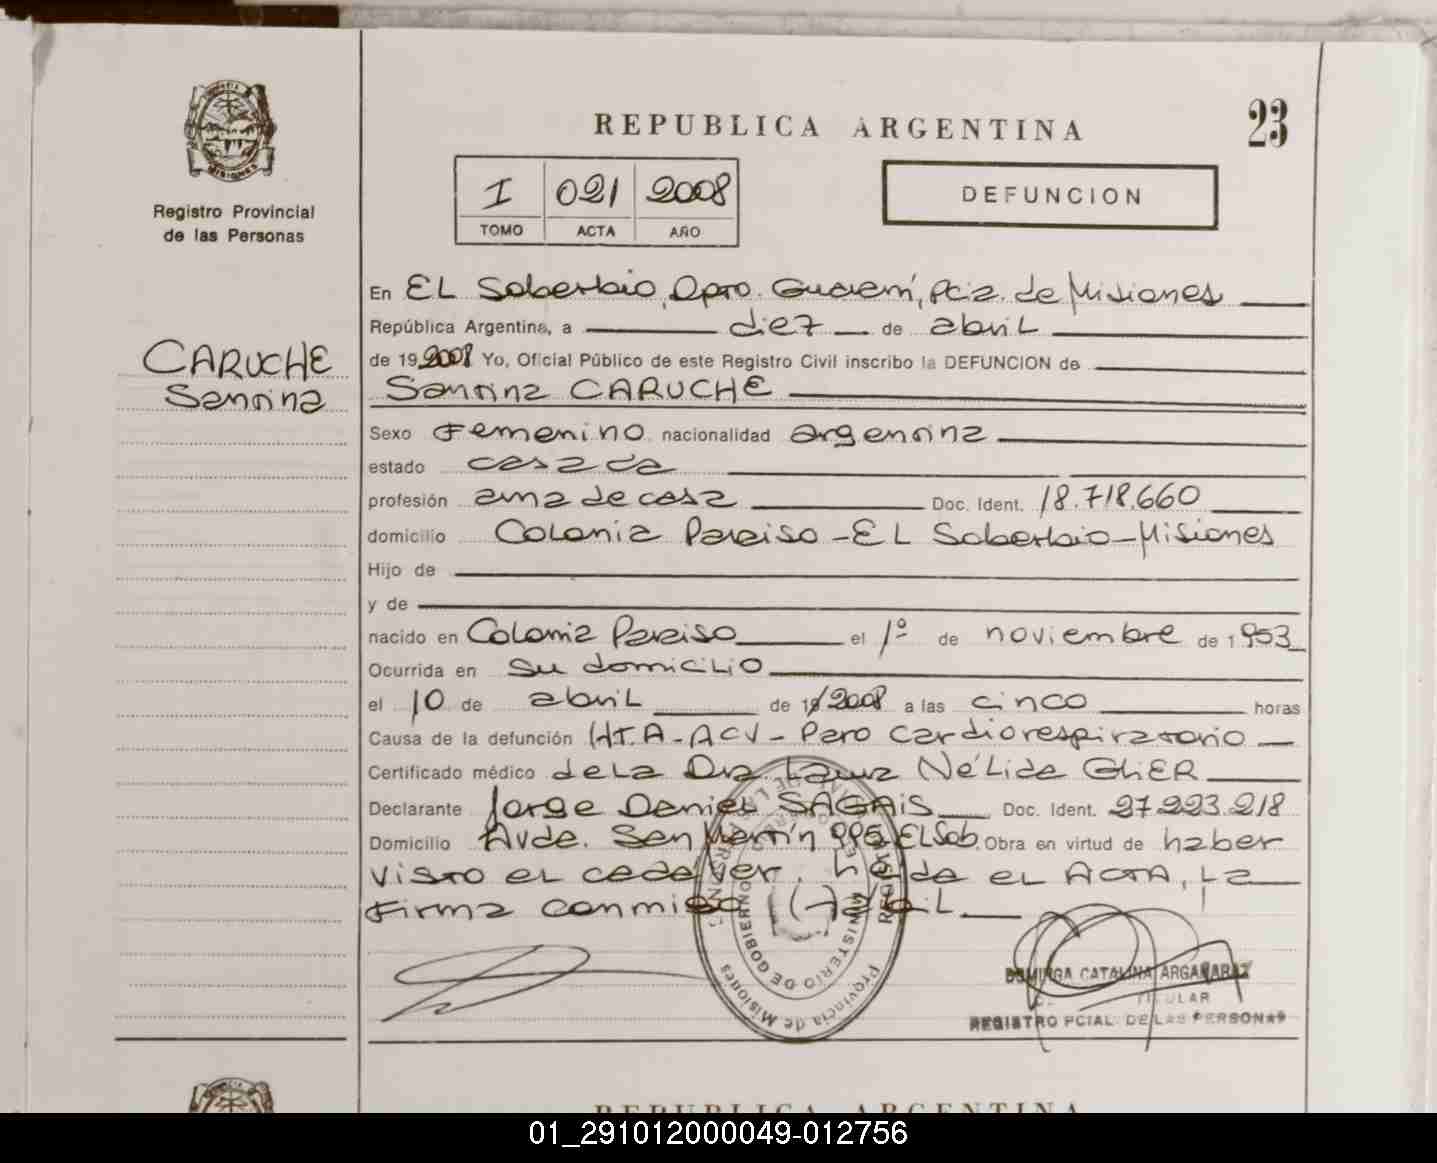 REPUBLICA ARGENTINA
23
Registro Provincial
de las Personas
I 021 2008
TOMO ACTA AÑO
DEFUNCION
CARUCHE
Santina
En EL Soberbio, Dpto. Guaraní, Pcia. de Misiones
República Argentina, a diez de abril
de 19 2008 Yo, Oficial Público de este Registro Civil inscribo la DEFUNCION de
Santina CARUCHE
Sexo Femenino nacionalidad argentina
estado casada
profesión ama de casa Doc. Ident. 18.718.660
domicilio Colonia Paraiso - EL Soberbio - Misiones
Hijo de
y de
nacido en Colonia Paraiso el 1º de noviembre de 1953
Ocurrida en su domicilio
el 10 de abril de 19/2008 a las cinco horas
Causa de la defunción HT.A - ACV - Paro Cardiorespiratorio
Certificado médico de La Dra. Laura Nélida GLIER
Declarante Jorge Daniel SAGAIS Doc. Ident. 27.223.218
Domicilio Avda. San Martín EL Sob. Obra en virtud de haber
visto el cadáver. Leída el ACTA, La
Firma conmigo
MINISTERIO DE GOBIERNO
Provincia de Misiones
DOMINGA CATALINA ARGAÑARAZ
TITULAR
REGISTRO PCIAL. DE LAS PERSONAS
REPUBLICA ARGENTINA
01_291012000049-012756